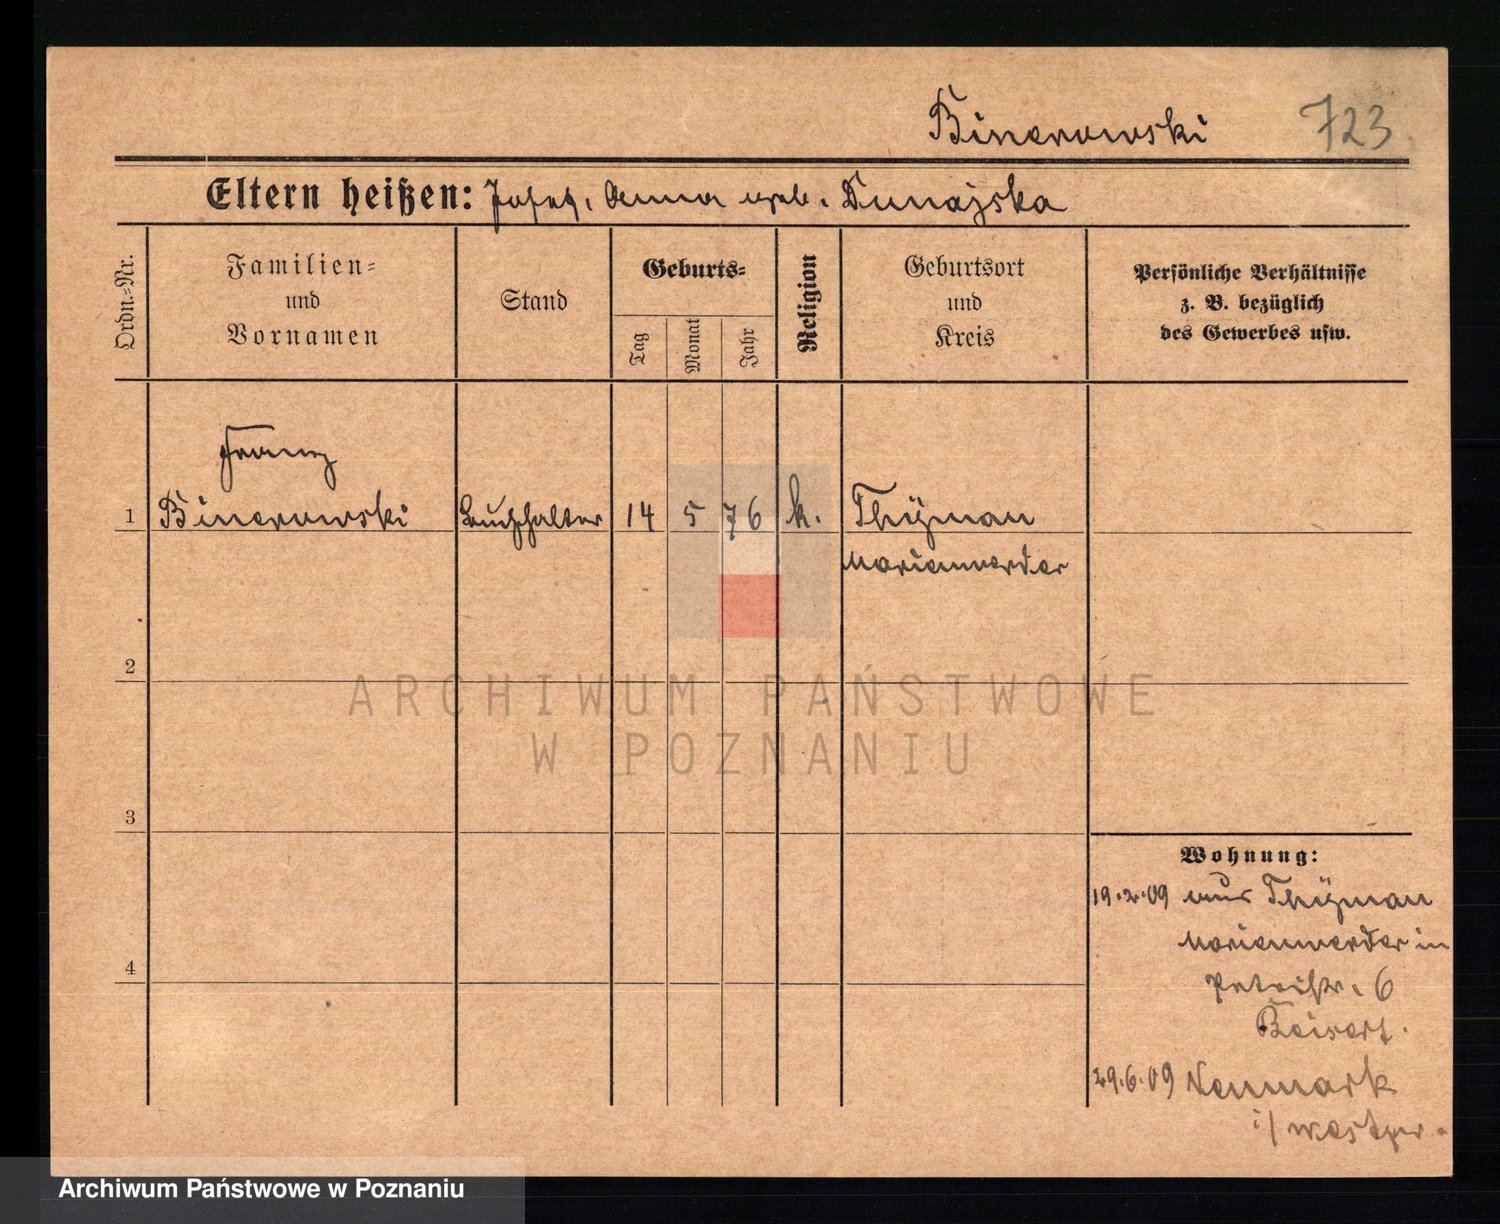 Binerowski 723
Eltern heißen: Josef, Anna geb. Dunajska
Ordn.-Nr.
Familien-
und
Vornamen
Stand
Geburts-
Tag
Monat
Jahr
Religion
Geburtsort
und
Kreis
Persönliche Verhältnisse
z. B. bezüglich
des Gewerbes usw.
Franz
1 Binerowski Buchhalter 14 5 76 k. Thÿmau
Marienwerder
2
3
4
Wohnung:
19.2.09 aus Thÿmau
Marienwerder in
Petristr. 6
29.6.09 Neumark
i/ Westpr.
ARCHIWUM PAŃSTWOWE
W POZNANIU
Archiwum Państwowe w Poznaniu